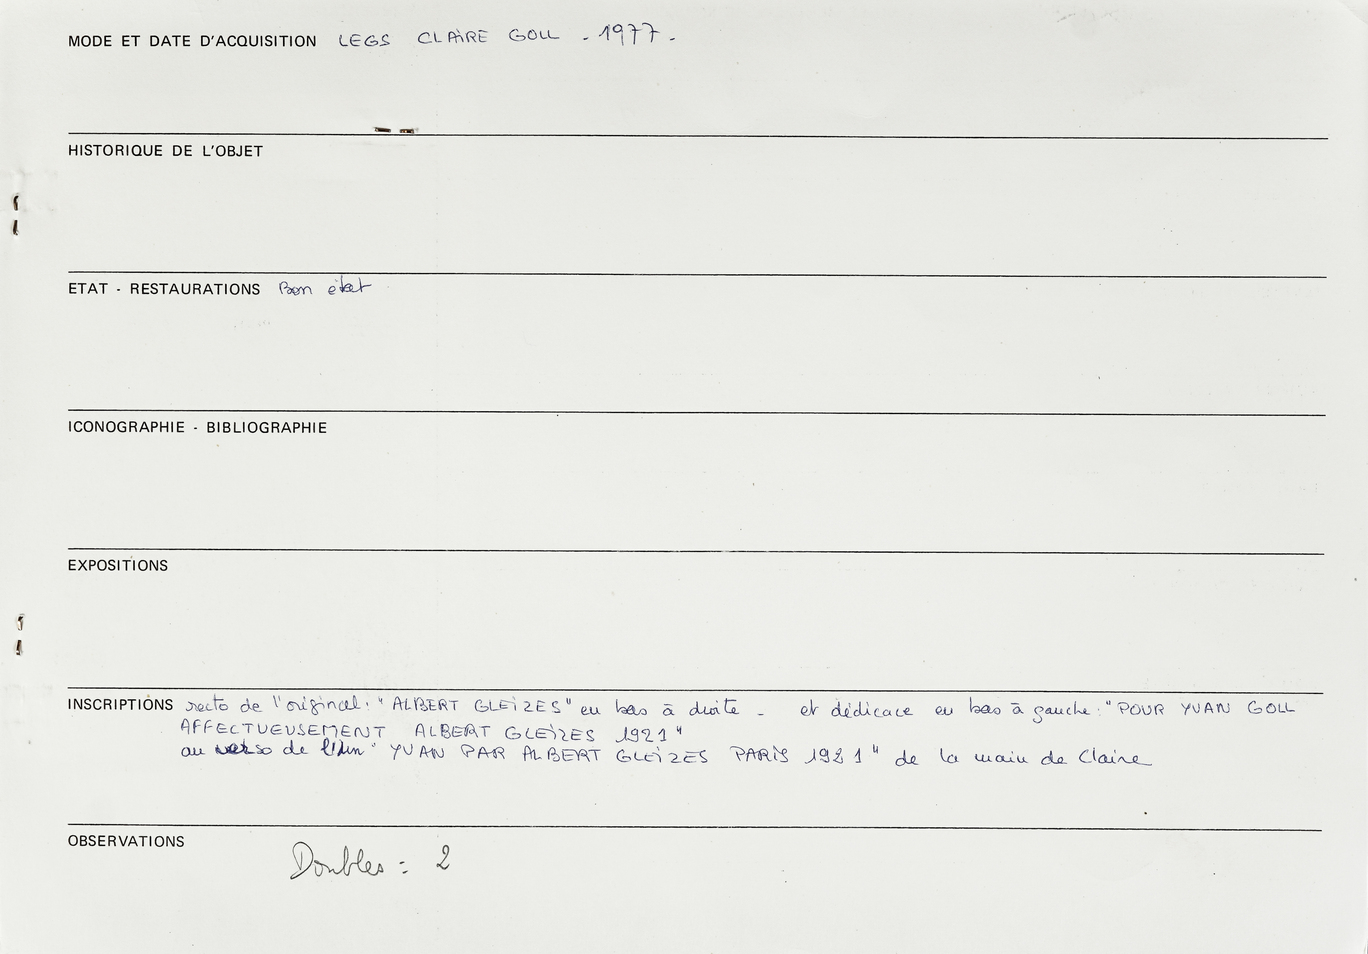 MODE ET DATE D'ACQUISITION LEGS CLAIRE GOLL - 1977 -
HISTORIQUE DE L'OBJET
ETAT - RESTAURATIONS Bon état
ICONOGRAPHIE - BIBLIOGRAPHIE
EXPOSITIONS
INSCRIPTIONS recto de l'original : "ALBERT GLEIZES" en bas à droite - et dédicace en bas à gauche : "POUR YVAN GOLL
AFFECTUEUSEMENT ALBERT GLEIZES 1921"
au verso de l'un "YVAN PAR ALBERT GLEIZES PARIS 1921" de la main de Claire
OBSERVATIONS Doubles = 2